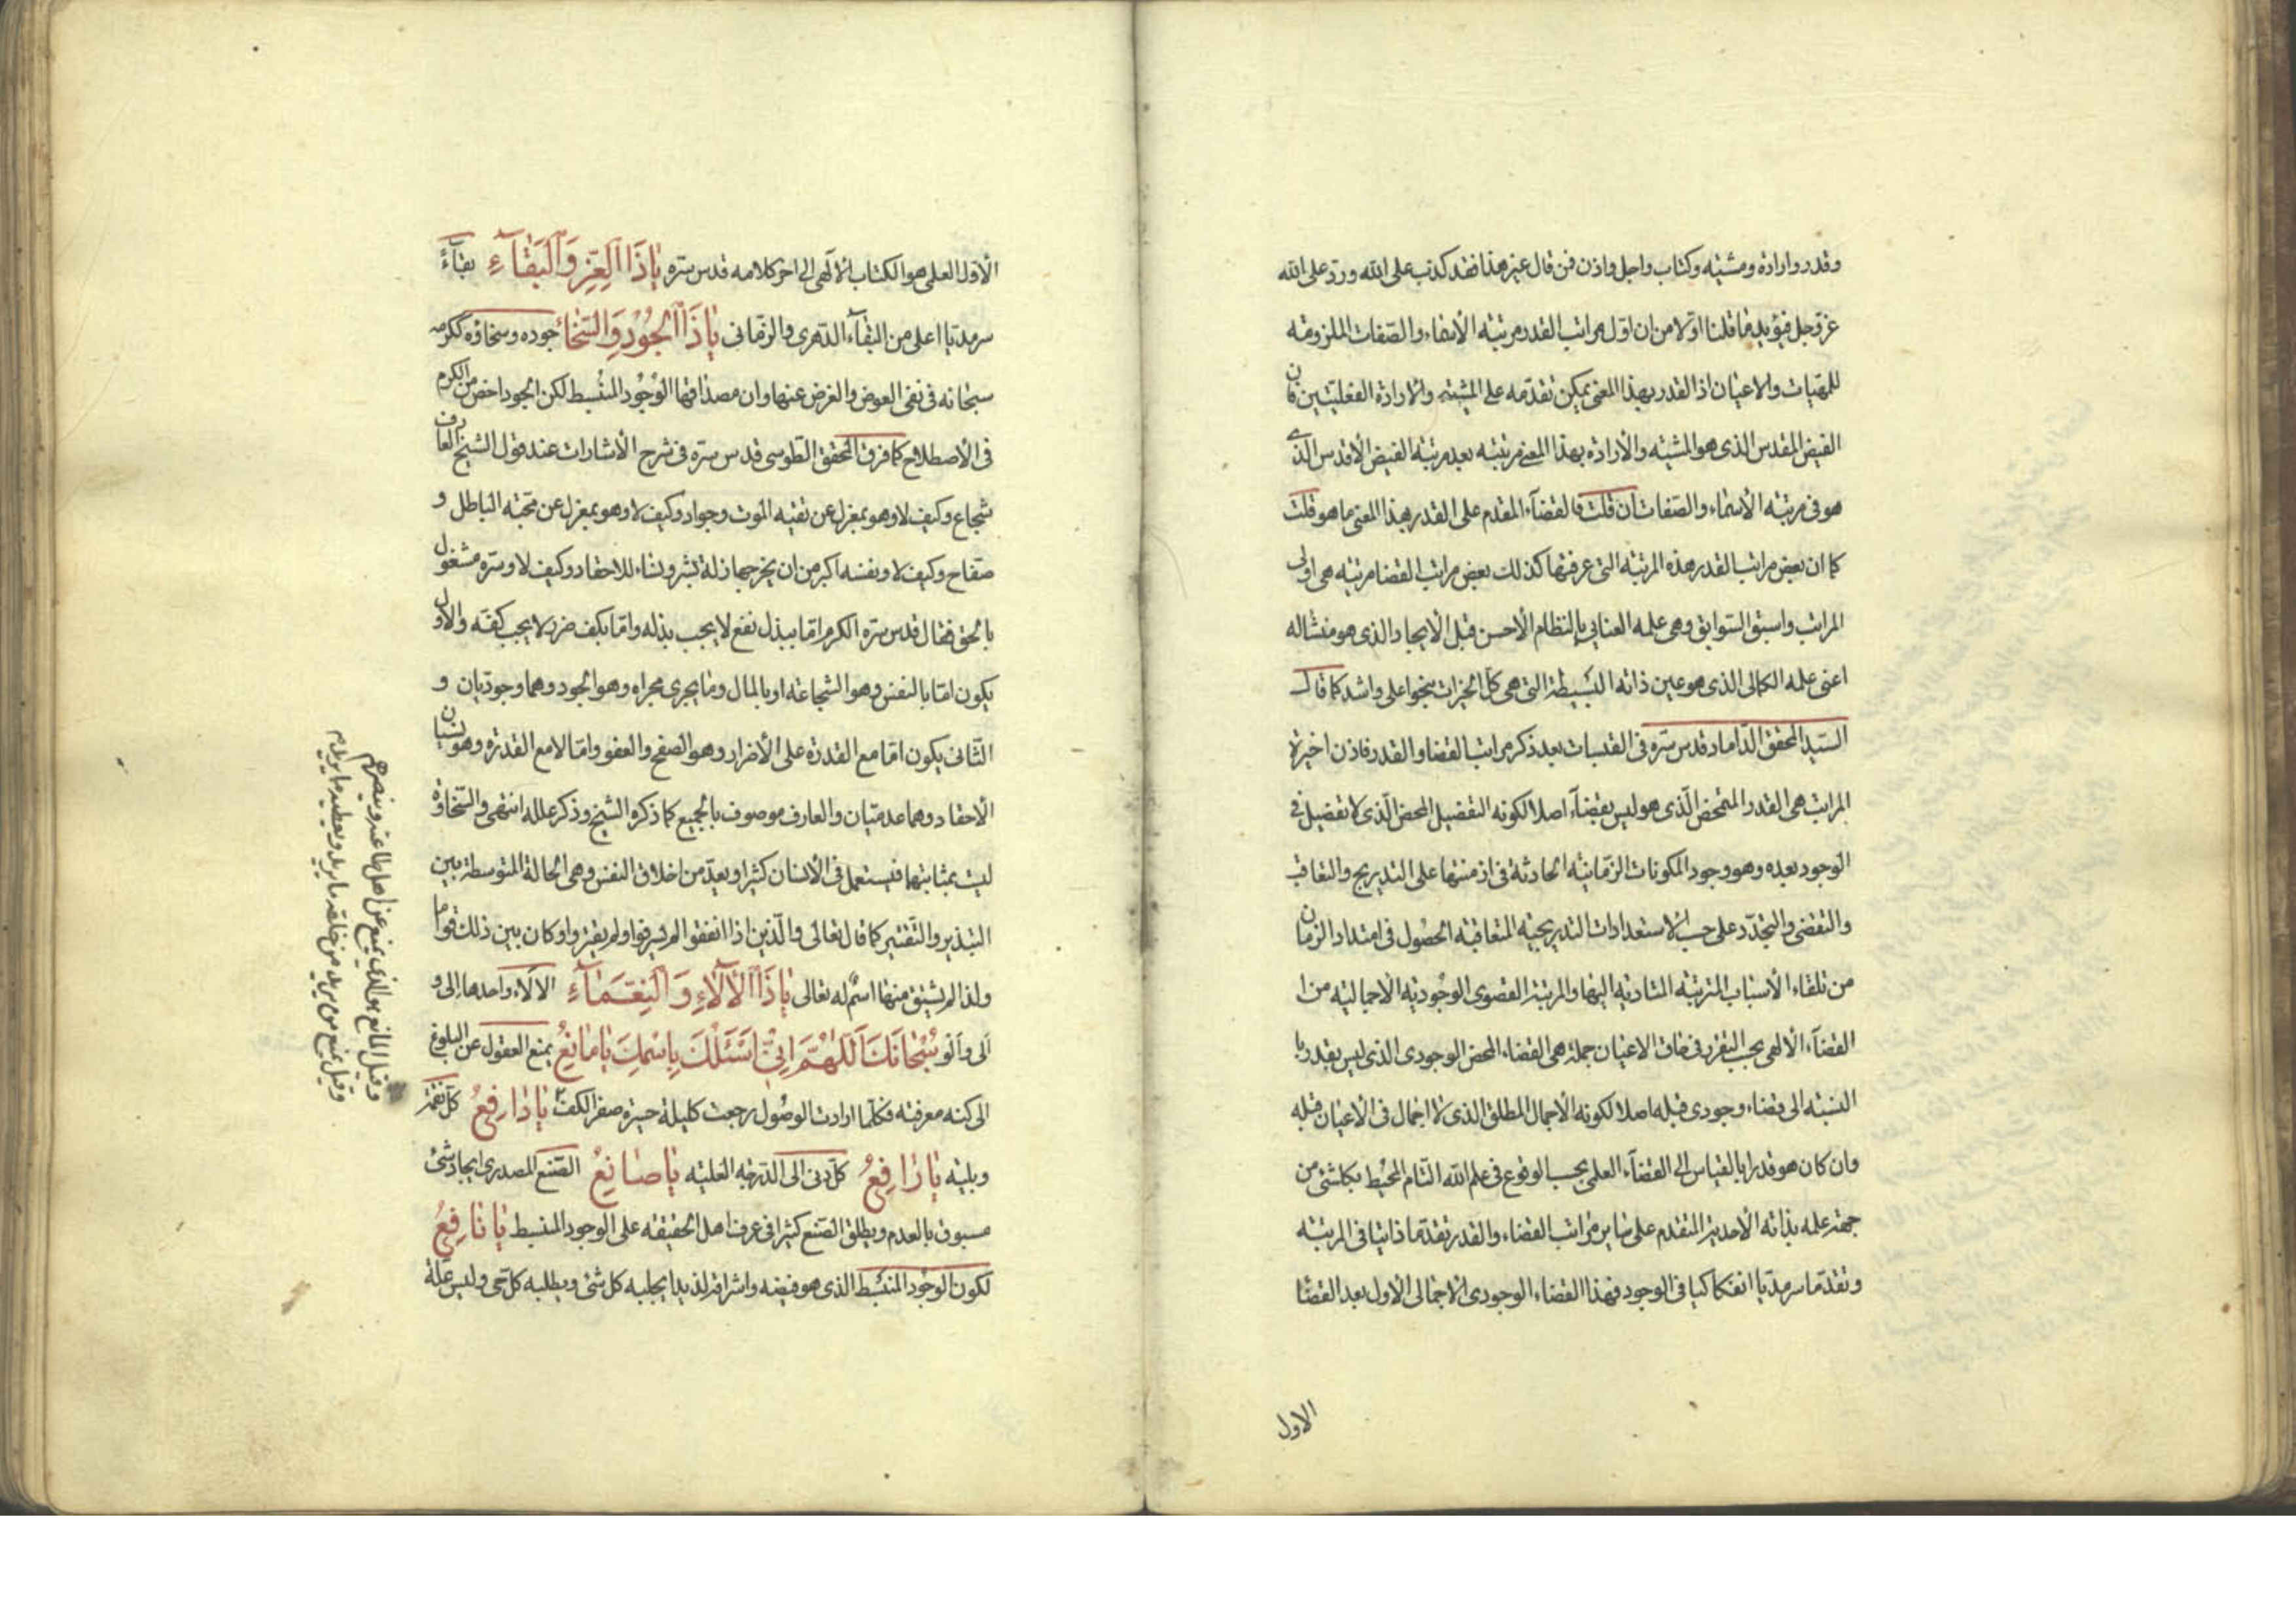 وقدر وارادة ومشيته وكتاب واجل واذن فمن قال غير هذا فقد كذب على الله ورد على الله
عزوجل فيؤيد ما قلنا اولا من ان اول مراتب القدر مرتبة الأسماء والصفات الملزومة
للمهيات والاعيان اذ القدر بهذا المعنى يمكن تقدمه على المشية والارادة الفعليتين فان
الفيض المقدس الذى هو المشية والأرادة بهذا المعنى مرتبته بعد مرتبة الفيض الأقدس الذي
هو فى مرتبة الأسماء والصفات ان قلت فالقضآء المقدم على القدر بهذا المعنى ما هو قلت
كما ان بعض مراتب القدر هذه المرتبة التى عرفتها كذلك بعض مراتب القضا مرتبة هى اولى
المراتب واسبق السوابق وهى علمه العنايى بالنظام الأحسن قبل الأيجاد الذى هو منشاله
اعنى علمه الكمالى الذى هو عين ذاته البسيطة التى هى كل الخيرات بنحو اعلى واشد كما قال
السيد المحقق الداماد قدس سره فى القبسات بعد ذكر مراتب القضا والقدر فاذن اخيرة
المراتب هى القدر المتمحض الذى هو ليس بقضآء اصلا لكونه التفصيل المحض الذى لا تفصيل فى
الوجود بعده وهو وجود المكونات الزمانية الحادثة فى ازمنتها على التدريج والتعاقب
والتقضى والتجدد على حسب الاستعدادات التدريجية المتعاقبة الحصول فى امتداد الزمان
من تلقاء الأسباب المترتبة المتادية اليها والمرتبة القصوى الوجودية الاجمالية من
القضآء الالهى بحسب التقرر فى متن الاعيان جملة هى القضاء المحض الوجودى الذى ليس بقدر با
لنسبة الى قضاء وجودى قبله اصلا لكونه الأجمال المطلق الذى لا اجمال فى الأعيان قبله
وان كان هو قدرا بالقياس الى القضآء العلمى بحسب الوقوع فى علم الله التام المحيط بكل شئ من
جهة علمه بذاته الأحدية المتقدم على ساير مراتب القضاء والقدر تقدما ذاتيا فى المرتبة
وتقدما سرمديا انفكاكيا فى الوجود فهذا القضاء الوجودى الاجمالى الأول بعد القضا
الاول
الأول العلمى هو الكتاب الالهى الى اخر كلامه قدس سره يا ذا العز والبقآء بقآءً
سرمديا اعلى من البقآء الدهرى والزمانى يا ذا الجود والسخاء جوده وسخاؤه ككرمه
سبحانه فى نفى العوض والغرض عنها وان مصداقها الوجود المنبسط لكن الجود اخص من الكرم
فى الأصطلاح كما فرق المحقق الطوسى قدس سره فى شرح الأشارات عند قول الشيخ العارف
شجاع وكيف لا وهو بمعزل عن تقية الموت وجواد وكيف لا وهو بمعزل عن محبة الباطل و
صفاح وكيف لا ونفسه اكبر من ان يخرجها زلة بشر ونساء للاحقاد وكيف لا وسره مشغول
بالحق فقال قدس سره الكرم اما ببذل نفع لا يجب بذله واما بكف ضرر لا يجب كفه والأول
يكون اما بالنفس وهو الشجاعة او بالمال وما يجرى مجراه وهو الجود وهما وجوديان و
الثانى يكون اما مع القدرة على الأضرار وهو الصفح والعفو واما لا مع القدرة وهو نسيان
الاحقاد وهما عدميان والعارف موصوف بالجميع كما ذكره الشيخ وذكر علله انتهى والسخاوة
ليست بمثابتهما فيستعمل فى الأنسان كثيرا ويعد من اخلاق النفس وهى الحالة المتوسطة بين
التبذير والتقتير كما قال تعالى والذين اذا انفقوا لم يسرفوا ولم يقتروا وكان بين ذلك قواما
ولذا لم يشتق منها اسم له تعالى يا ذا الآلاء والنعمآء الآلاء واحدها إلى و
ألى وألو سبحانك اللهم انى اسئلك باسمك يا مانع يمنع العقول عن البلوغ
الى كنه معرفته فكلما ارادت الوصول رجعت كليلة حسيرة صفر الكف يا دافع كل نقمة
وبلية يا رافع كل دنى الى الدرجة العلية يا صانع الصنع المصدرى ايجاد شئ
مسبوق بالعدم ويطلق الصنع كثيرا فى عرف اهل الحقيقة على الوجود المنبسط يا نافع
لكون الوجود المنبسط الذى هو فيضه واشراقه لذيذا يجلبه كل شئ ويطلبه كل حى وليس علة
وقيل المانع هو الذى يمنع عن اهل طاعته وينصرهم
وقيل يمنع من يريد من خلقه ما يريد ويعطيه ما يريد